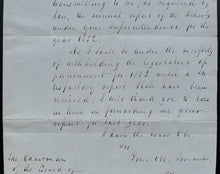 transmitting to me, as required by
law, the annual report of the Schools
under your Superintendence for the
year 1862.
As I shall be under the necessity
of withholding the legislative ap
portionment for 1863 until a sat
isfactory report shall have been
received, I will thank you to lose
no time in forwarding me your
report for last year.
I have the honor to be
Sir,
Your Obt. Servant
The Chairman
of the Board of